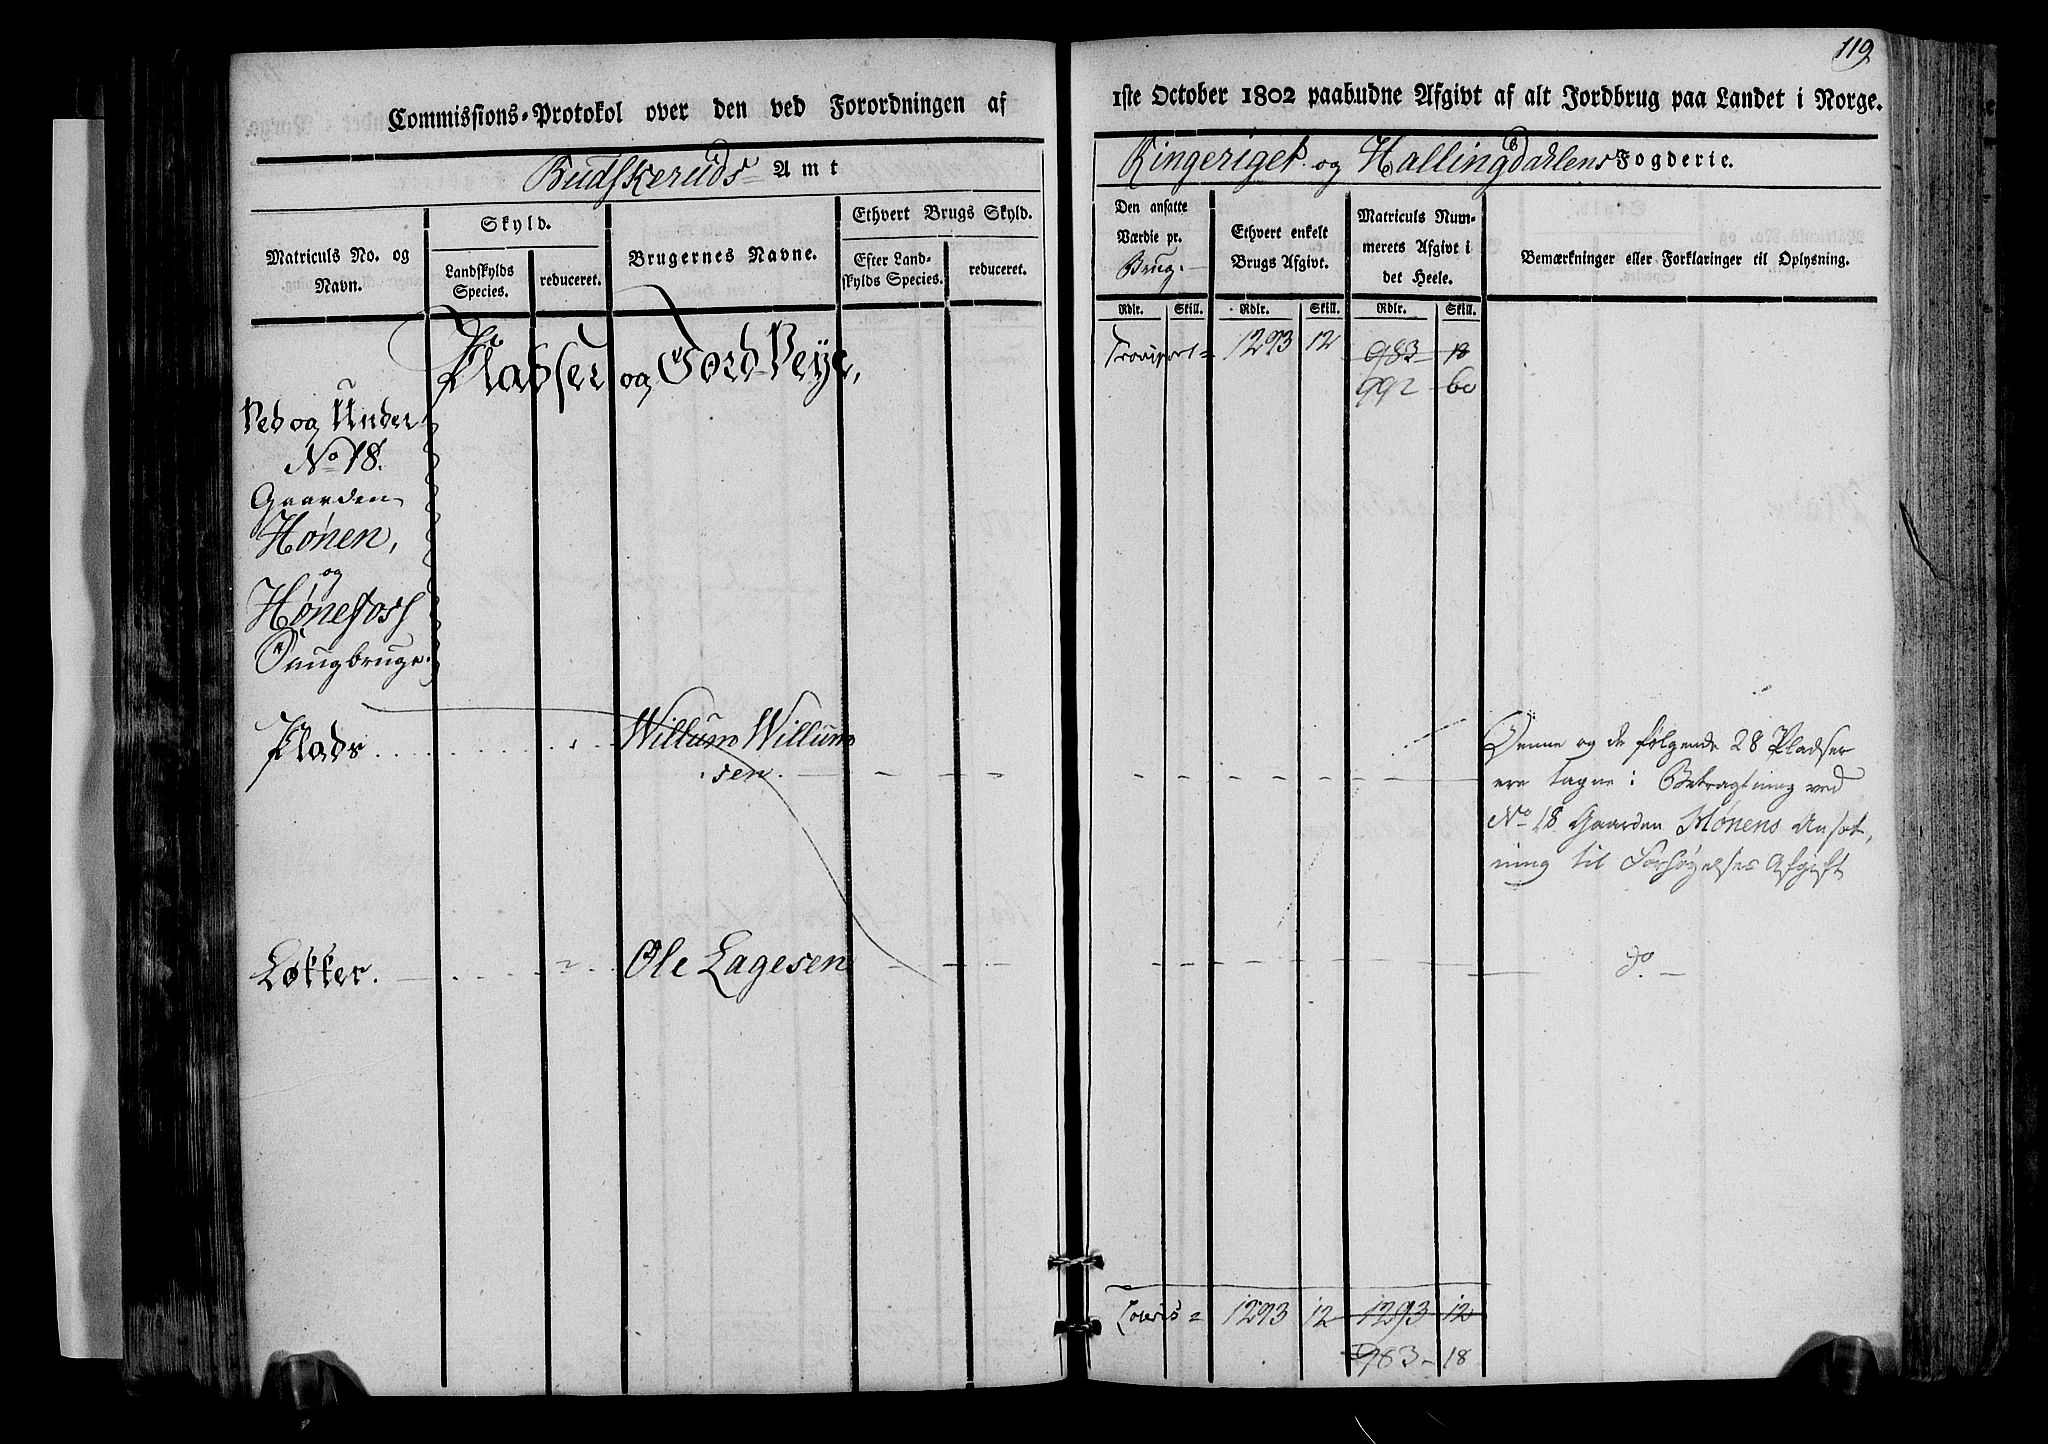 119
Commissions-Protokol over den ved Forordningen af
1ste October 1802 paabudne Afgivt af alt Jordbrug paa Landet i Norge.
Budskeruds Amt
Ringeriget og Hallingdahlens Fogderie.
Matriculs No. og Navn.
Skyld.
Landskylds Species.
reduceret.
Brugernes Navne.
Ethvert Brugs Skyld.
Efter Landskylds Species.
reduceret.
Den ansatte Værdie pr. Brug.
Ethvert enkelt Brugs Afgivt.
Matriculs Nummerets Afgivt i det Heele.
Bemærkninger eller Forklaringer til Oplysning.
Rdlr. Skill. Rdlr. Skill. Rdlr. Skill.
Transport 1293 12 983 18
992 60
Pladser og Jord-Veye,
Ved og Under
No 18.
Gaarden
Hønen,
og
Hønefoss
Saugbruge.
Plads
Willum Willum
sen.
Denne og de følgende 28 Pladser
ere tagne i Betragtning ved
No 18 Gaarden Hønens Ansæt,
ning til Forhøyelses Afgift
Løkker.
Ole Lagesen
do
Lateris 1293 12 1293 12
983 18